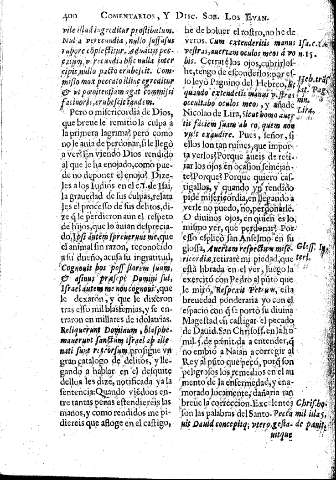 400 COMENTARIOS, Y DISC. SOB. LOS EVAN.
vile illud ingreditur prostibulum.
Nul a verecundia, nullo suffusus
rubore conspicitur. Advenit
& ut pœnitentiam egit commissi
facinoris, erubescit tandem.
Pero o misericordia de Dios,
que breve le remató la culpa à
la primera lagrima! pero como
no le auia de perdonar, si le llegó
a ver? Si en viendo Dios rendido
al que lo ha enojado, como puede
de no deponer el enojo? Dize-
les a los Iudios en el c. 1. de Isai.
la grauedad de sus culpas, relata
les el processo de sus delitos, di-
ze q̃ le perdieron aun el respeto
de hijos, que lo auian desprecia-
do, Ipsi autem spreverunt me, que
el animal sin razon, reconocida
a su dueño, acusa su ingratitud,
Cognovit bos possessorem suum,
& asinus præsepe Domini sui,
Israel autem me non cognouit, que
le dexarõn, y que le dixeron
tras esso mil blasfemias, y se en-
traron en millares de idolatrias.
Reliquerunt Dominum, blasphe-
mauerunt sanctum Israel, ab alie-
nati sunt retrorsum prosigue vn
gran catalogo de delitos, y lle-
gando a hablar en el desquite
dellos les dize, notificada ya la
sentencia: Quando viédoos en-
tre tantas penas estendiereis las
manos, y como rendidos me pi-
diereis que afloxe en el castigo,
he de boluer el rostro, no he de
veros. Cum extenderitis manus
vestras, auertam oculos meos à vo
bis. Cerraré los ojos, cubrirélos-
he, tengo de esconderlos: par es-
so leyó Paguino del Hebreo, Et
quando extenderitis manus vestras
occultabo oculos meos, y añade
Nicolao de Lira, sicut homo auer-
tit faciem suam ab eo, quem non
vult exaudire. Pues, señor, si
ellos son tan ruines, que impor-
ta verlos? Porque aueis de reti-
rar los ojos en ocasion semejan-
te? Porque? Porque quiero cas-
tigallos, y quando yo rendido
pide misericordia, en llegando a
verle no puedo, no, perdonarle.
O diuinos ojos, en quien es lo
mismo ver, que perdonar! Por
esso esplicó san Anselmo en su
glosa, Auertam respectum mise-
ricordiæ, retiraré mi piedad, que
está librada en el ver, luego la
exercitó con Pedro al puto que
le miró, Respexit Petrum, esta
breuedad ponderaria yo con el
espacio con q̃ se portó su diuina
Magestad en castigar el pecado
de Dauid. San Chrisost. en la ho
mil. 5. de pœnit. da a entender, q̃
no embió a Natan a corregir al
Rey al puto que pecó, porque son
peligrosos los remedios en el au
mento de la enfermedad, y ena-
morado locamente, dañaria tan
breue la correccion. Excelentes
son las palabras del Santo. Peccã
uit Dauid concepitq; vtero gesta-
uitque
Isai. c. 1.
n. 15.
Hebr. trās
lat. Pag
nin.
Lira.
Gloss. in
terl.
Chrisho.
mil. 5.
de pænit.